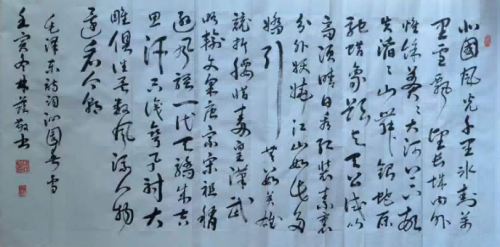 北国风光千里冰封万
里雪飘望长城内外
惟馀莽莽大河上下顿
失滔滔山舞银蛇原
驰蜡象欲与天公试比
高须晴日看红装素裹
分外妖娆江山如此多
娇引
无数英雄
竞折腰惜秦皇汉武
略输文采唐宗宋祖稍
逊风骚一代天骄成吉
思汗只识弯弓射大
雕俱往矣数风流人物
还看今朝
毛泽东诗词沁园春雪
壬寅冬林
书